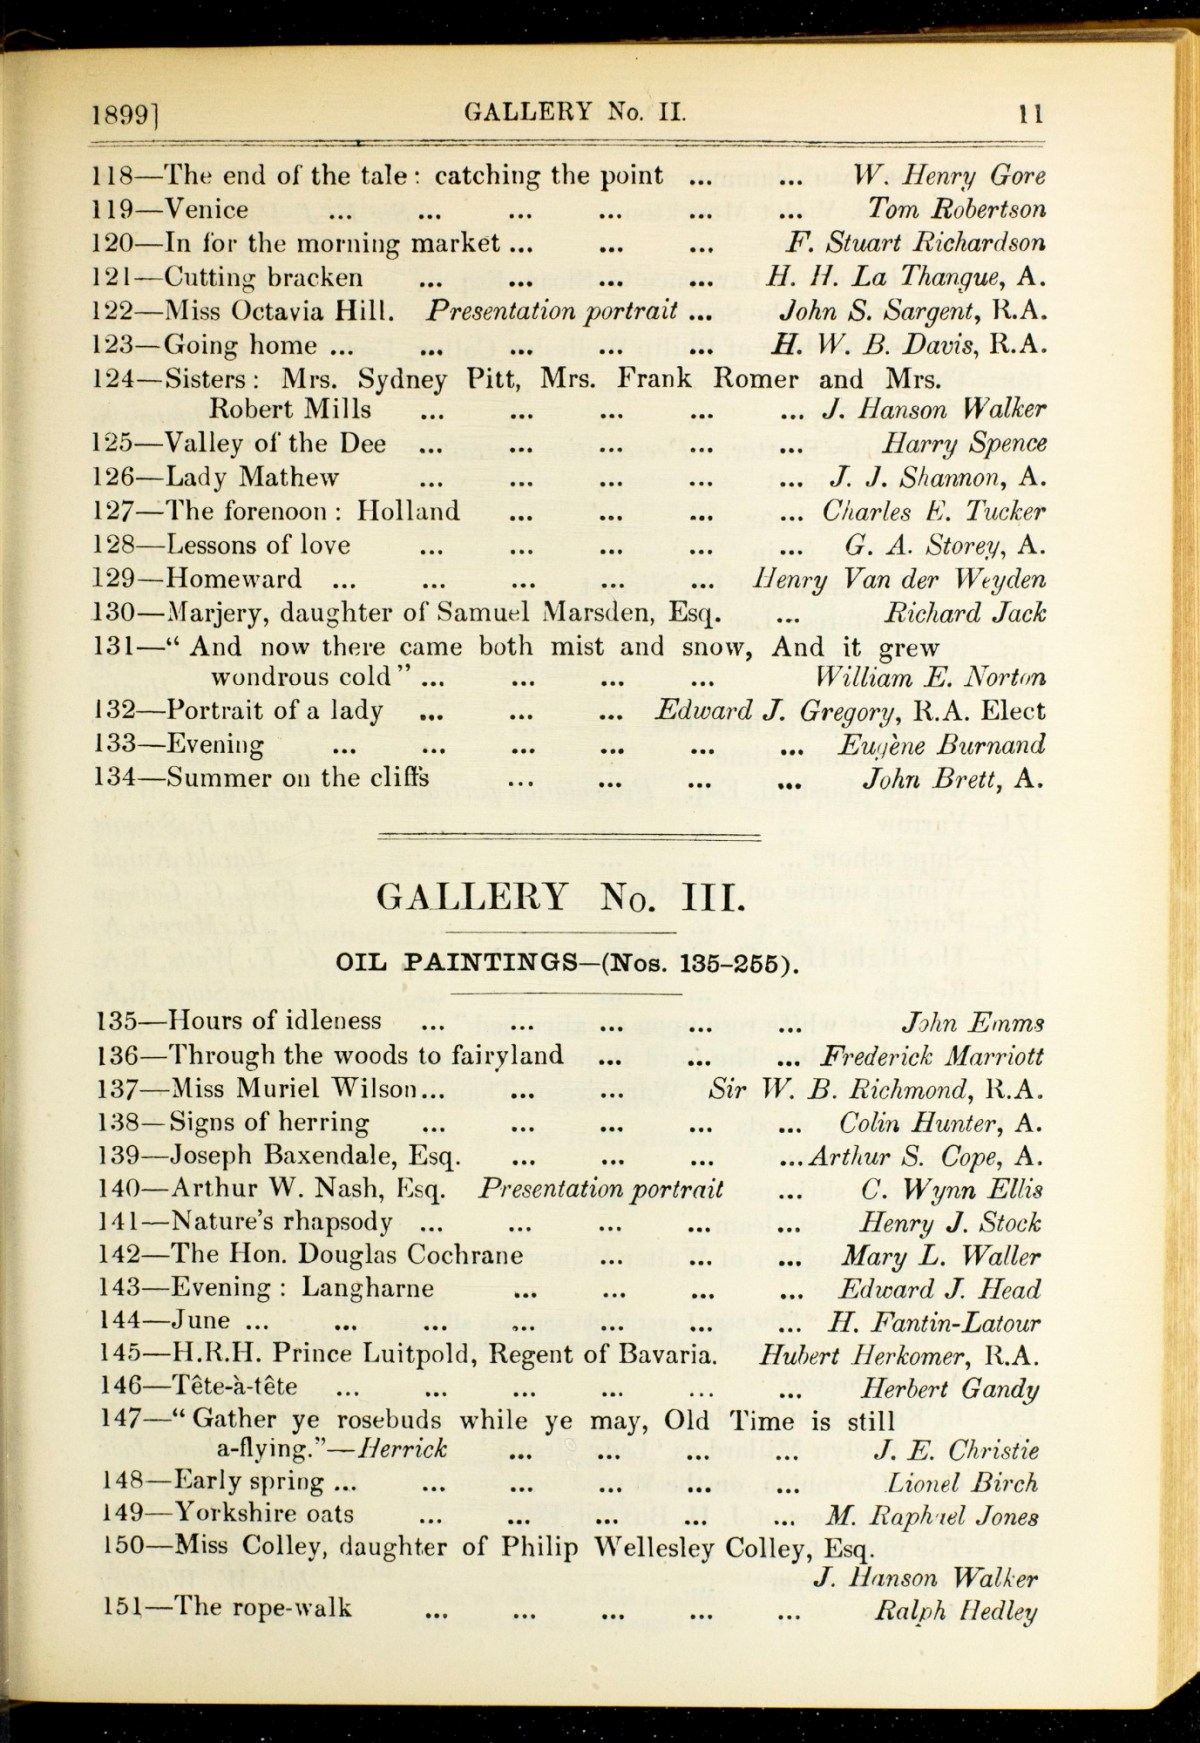 1899] GALLERY No. II. 11
118—The end of the tale: catching the point ... ... W. Henry Gore
119—Venice ... ... ... ... ... ... Tom Robertson
120—In for the morning market ... ... ... F. Stuart Richardson
121—Cutting bracken ... ... ... ... H. H. La Thangue, A.
122—Miss Octavia Hill. Presentation portrait ... John S. Sargent, R.A.
123—Going home ... ... ... ... ... H. W. B. Davis, R.A.
124—Sisters: Mrs. Sydney Pitt, Mrs. Frank Romer and Mrs.
Robert Mills ... ... ... ... ... J. Hanson Walker
125—Valley of the Dee ... ... ... ... ... Harry Spence
126—Lady Mathew ... ... ... ... ... J. J. Shannon, A.
127—The forenoon: Holland ... ... ... ... Charles E. Tucker
128—Lessons of love ... ... ... ... ... G. A. Storey, A.
129—Homeward ... ... ... ... ... Henry Van der Weyden
130—Marjery, daughter of Samuel Marsden, Esq. ... Richard Jack
131—“And now there came both mist and snow, And it grew
wondrous cold” ... ... ... ... William E. Norton
132—Portrait of a lady ... ... ... Edward J. Gregory, R.A. Elect
133—Evening ... ... ... ... ... ... Eugène Burnand
134—Summer on the cliffs ... ... ... ... John Brett, A.
GALLERY No. III.
OIL PAINTINGS—(Nos. 135-255).
135—Hours of idleness ... ... ... ... ... John Emms
136—Through the woods to fairyland ... ... ... Frederick Marriott
137—Miss Muriel Wilson... ... ... Sir W. B. Richmond, R.A.
138—Signs of herring ... ... ... ... ... Colin Hunter, A.
139—Joseph Baxendale, Esq. ... ... ... ... Arthur S. Cope, A.
140—Arthur W. Nash, Esq. Presentation portrait ... C. Wynn Ellis
141—Nature's rhapsody ... ... ... ... ... Henry J. Stock
142—The Hon. Douglas Cochrane ... ... ... Mary L. Waller
143—Evening: Langharne ... ... ... ... Edward J. Head
144—June ... ... ... ... ... ... ... H. Fantin-Latour
145—H.R.H. Prince Luitpold, Regent of Bavaria. Hubert Herkomer, R.A.
146—Tête-à-tête ... ... ... ... ... ... Herbert Gandy
147—“Gather ye rosebuds while ye may, Old Time is still
a-flying.”—Herrick ... ... ... ... J. E. Christie
148—Early spring ... ... ... ... ... ... Lionel Birch
149—Yorkshire oats ... ... ... ... ... M. Raphael Jones
150—Miss Colley, daughter of Philip Wellesley Colley, Esq.
J. Hanson Walker
151—The rope-walk ... ... ... ... ... Ralph Hedley